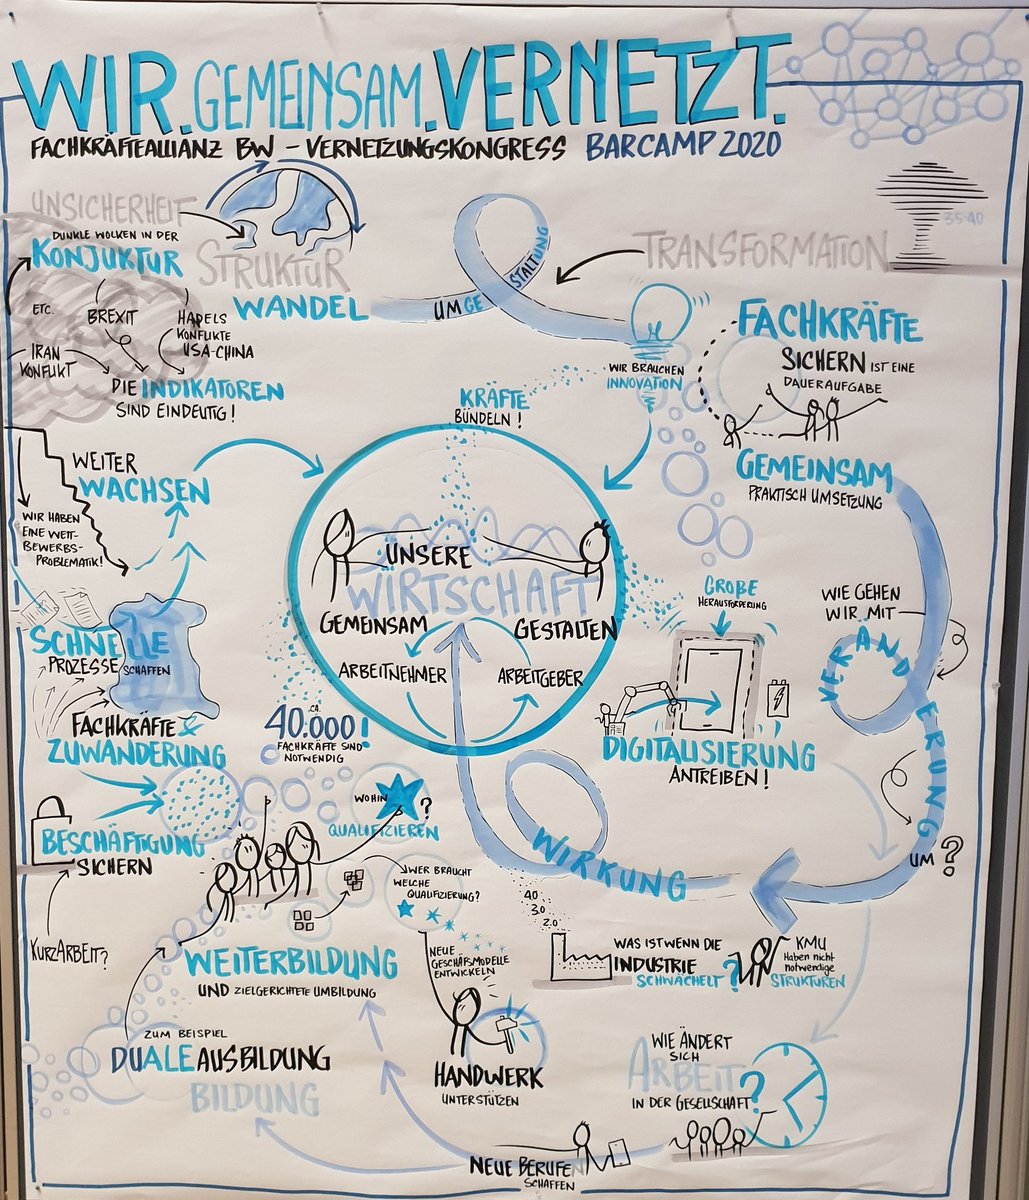 WIR.GEMEINSAM.VERNETZT.
FACHKRÄFTEALLIANZ BW – VERNETZUNGSKONGRESS BARCAMP 2020
UNSICHERHEIT
DUNKLE WOLKEN IN DER
KONJUKTUR
ETC.
BREXIT
HADELS
KONFLIKTE
USA-CHINA
IRAN
KONFLIKT
DIE INDIKATOREN
SIND EINDEUTIG!
STRUKTUR
WANDEL
UMGESTALTUNG
TRANSFORMATION
35-40
WIR BRAUCHEN
INNOVATION
FACHKRÄFTE
SICHERN IST EINE
DAUERAUFGABE
GEMEINSAM
PRAKTISCH UMSETZUNG
KRÄFTE
BÜNDELN!
WEITER
WACHSEN
WIR HABEN
EINE WETT-
BEWERBS-
PROBLEMATIK!
UNSERE
WIRTSCHAFT
GEMEINSAM
GESTALTEN
ARBEITNEHMER
ARBEITGEBER
SCHNELLE
PROZESSE SCHAFFEN
FACHKRÄFTE &
ZUWANDERUNG
GROßE
HERAUSFORDERUNG
DIGITALISIERUNG
ANTREIBEN!
WIE GEHEN
WIR MIT
VERÄNDERUNG
UM?
CA.
40.000!
FACHKRÄFTE SIND
NOTWENDIG
BESCHÄFTIGUNG
SICHERN
KURZARBEIT?
WOHIN
QUALIFIZIEREN?
WER BRAUCHT
WELCHE
QUALIFIZIERUNG?
WIRKUNG
WEITERBILDUNG
UND ZIELGERICHTETE UMBILDUNG
NEUE
GESCHÄFSMODELLE
ENTWICKELN
HANDWERK
UNTERSTÜTZEN
4.0
3.0
2.0
WAS IST WENN DIE
INDUSTRIE
SCHWÄCHELT?
KMU
Haben nicht
notwendige
STRUKTUREN
ZUM BEISPIEL
DUALE AUSBILDUNG
BILDUNG
WIE ÄNDERT
SICH
ARBEIT
IN DER GESELLSCHAFT?
NEUE BERUFE
SCHAFFEN